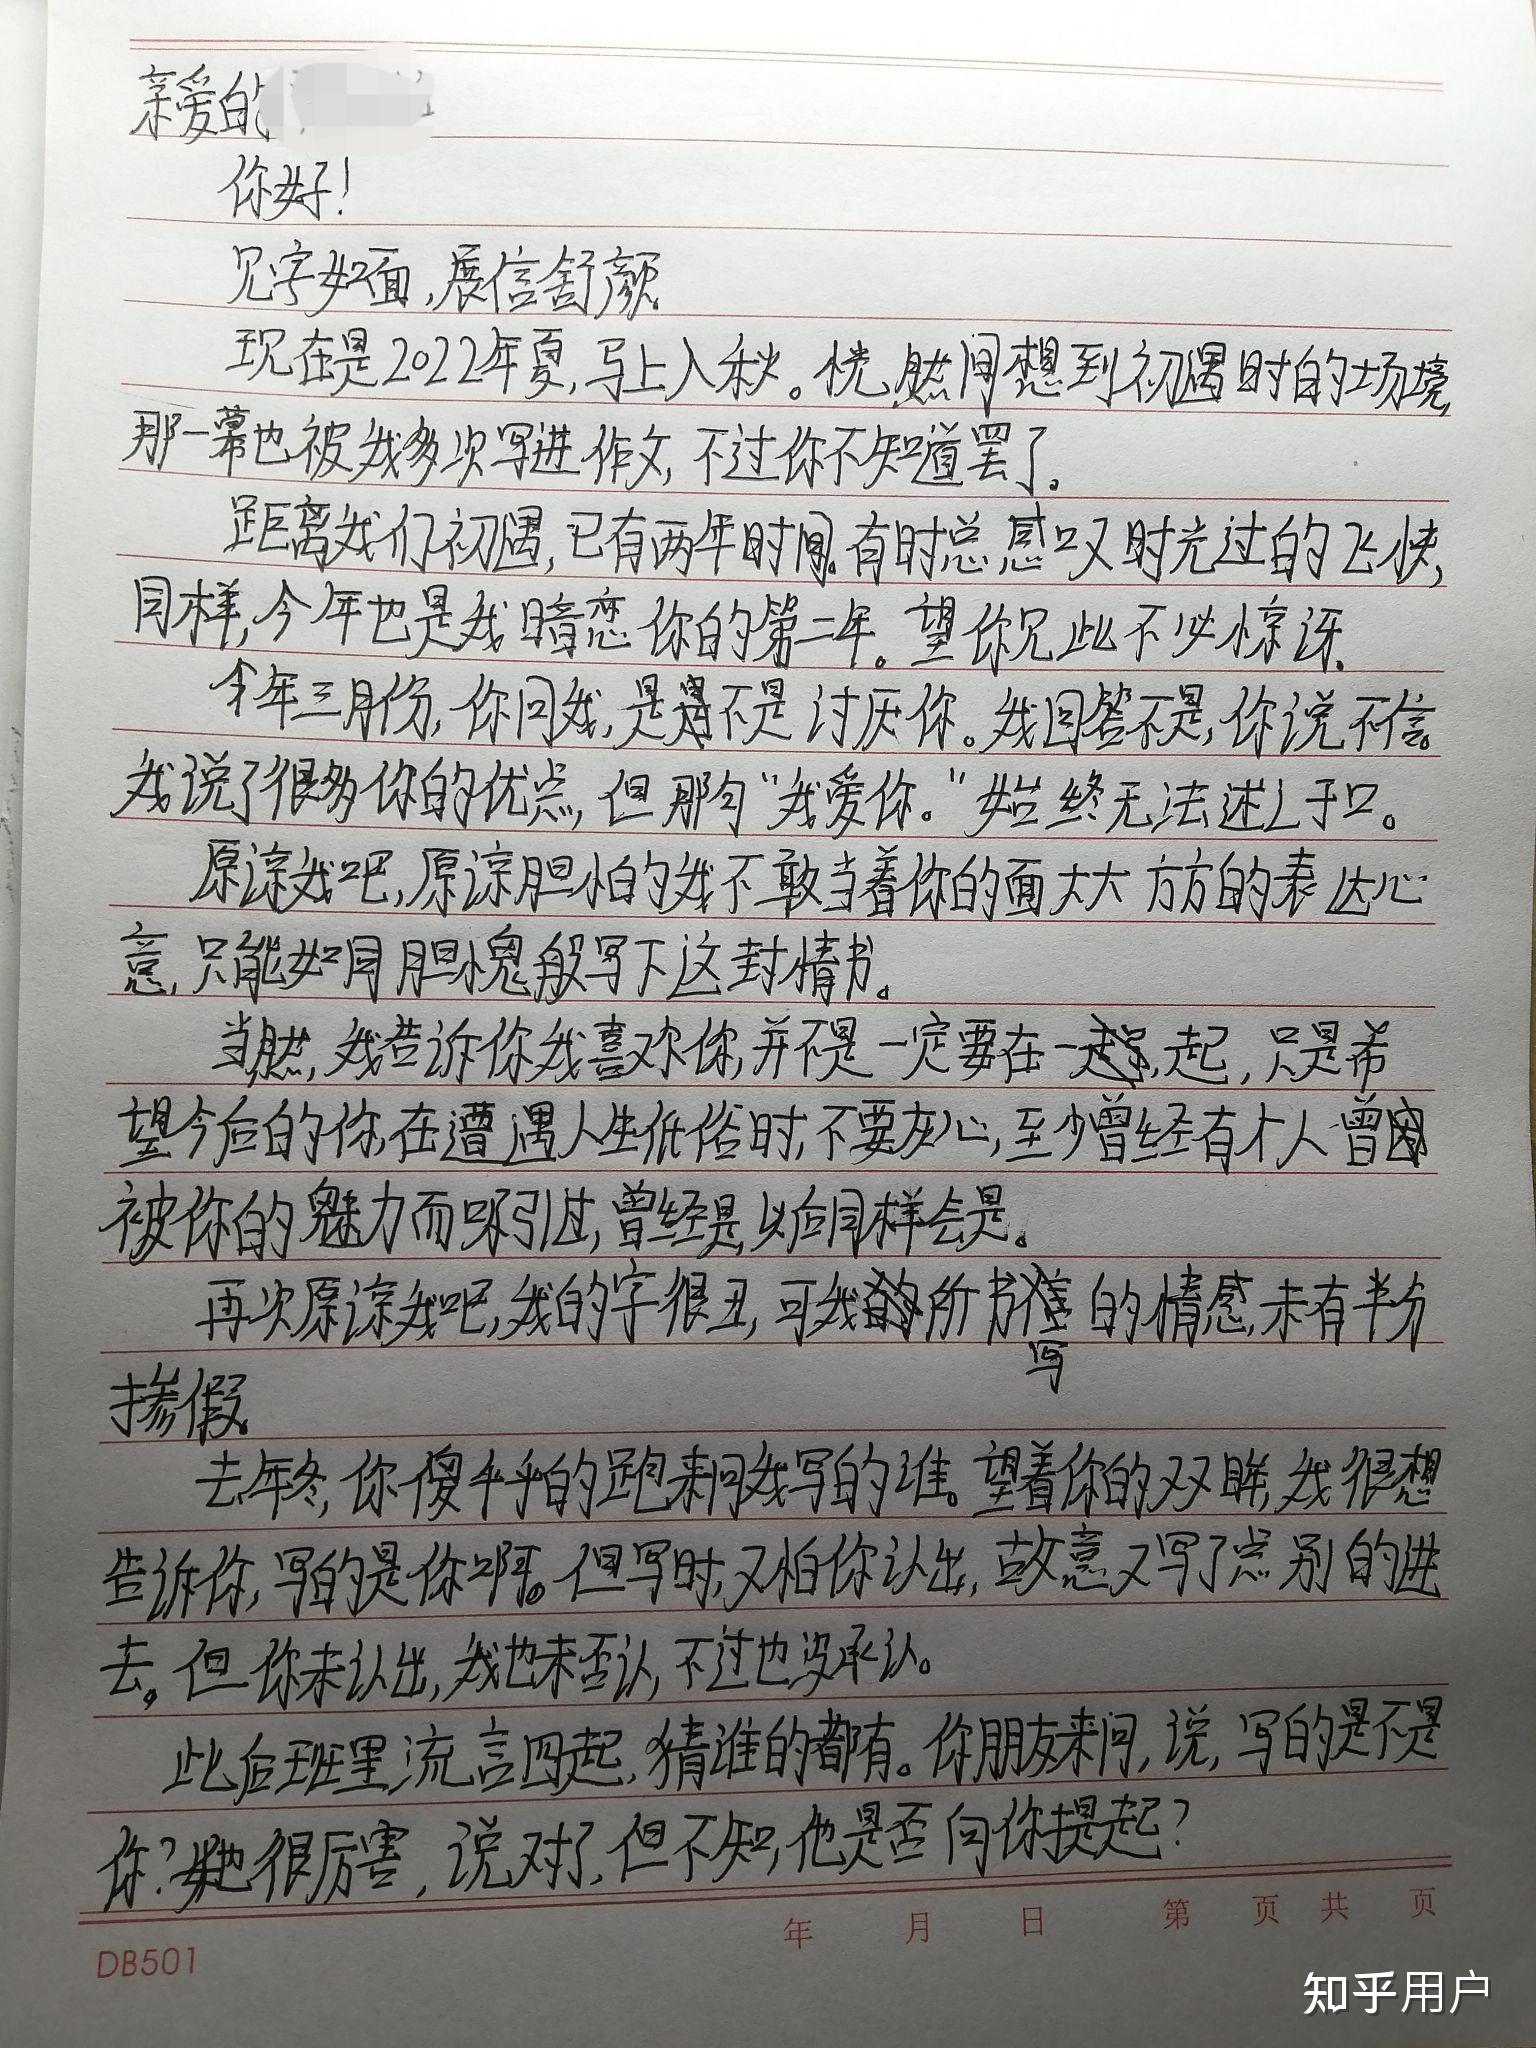 亲爱的
你好！
见字如面，展信舒颜。
现在是2022年夏，马上入秋。恍然间想到初遇时的场境，
那一幕也被我多次写进作文，不过你不知道罢了。
距离我们初遇，已有两年时间。有时总感叹时光过的飞快，
同样，今年也是我暗恋你的第二年。望你见此不必惊讶。
今年三月份，你问我，是不是讨厌你。我回答不是，你说不信。
我说了很多你的优点，但那句“我爱你。”始终无法述之于口。
原谅我吧，原谅胆怕的我不敢当着你的面大大方方的表达心
意，只能如同胆小鬼般写下这封情书。
当然，我告诉你我喜欢你，并不是一定要在一起，只是希
望今后的你，在遭遇人生低俗时，不要灰心，至少曾经有个人曾
被你的魅力而吸引过，曾经是，以后同样会是。
再次原谅我吧，我的字很丑，可我所书写的情感，未有半分
掺假。
去年冬，你傻乎乎的跑来问我写的谁。望着你的双眸，我很想
告诉你，写的是你啊。但写时，又怕你认出，故意又写了点别的进
去。但你未认出，我也未否认，不过也没承认。
此后班里流言四起，猜谁的都有。你朋友来问，说，写的是不是
你？她很厉害，说对了，但不知，他是否向你提起？
年 月 日 第 页 共 页
DB501
知乎用户